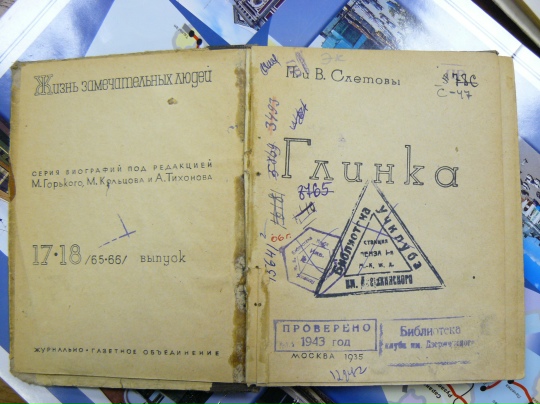 Жизнь замечательных людей
СЕРИЯ БИОГРАФИЙ ПОД РЕДАКЦИЕЙ
М. Горького, М. Кольцова и А. Тихонова
17·18 /65·66/ выпуск
ЖУРНАЛЬНО-ГАЗЕТНОЕ ОБЪЕДИНЕНИЕ
П. и В. Слетовы
С-47
Глинка
3765
66 г.
Библиотека
Учклуба
СТАНЦИЯ
ПЕНЗА
им. Дзержинского
ПРОВЕРЕНО
1943 год
МОСКВА 1935
Библиотека
клуба им. Дзержинского